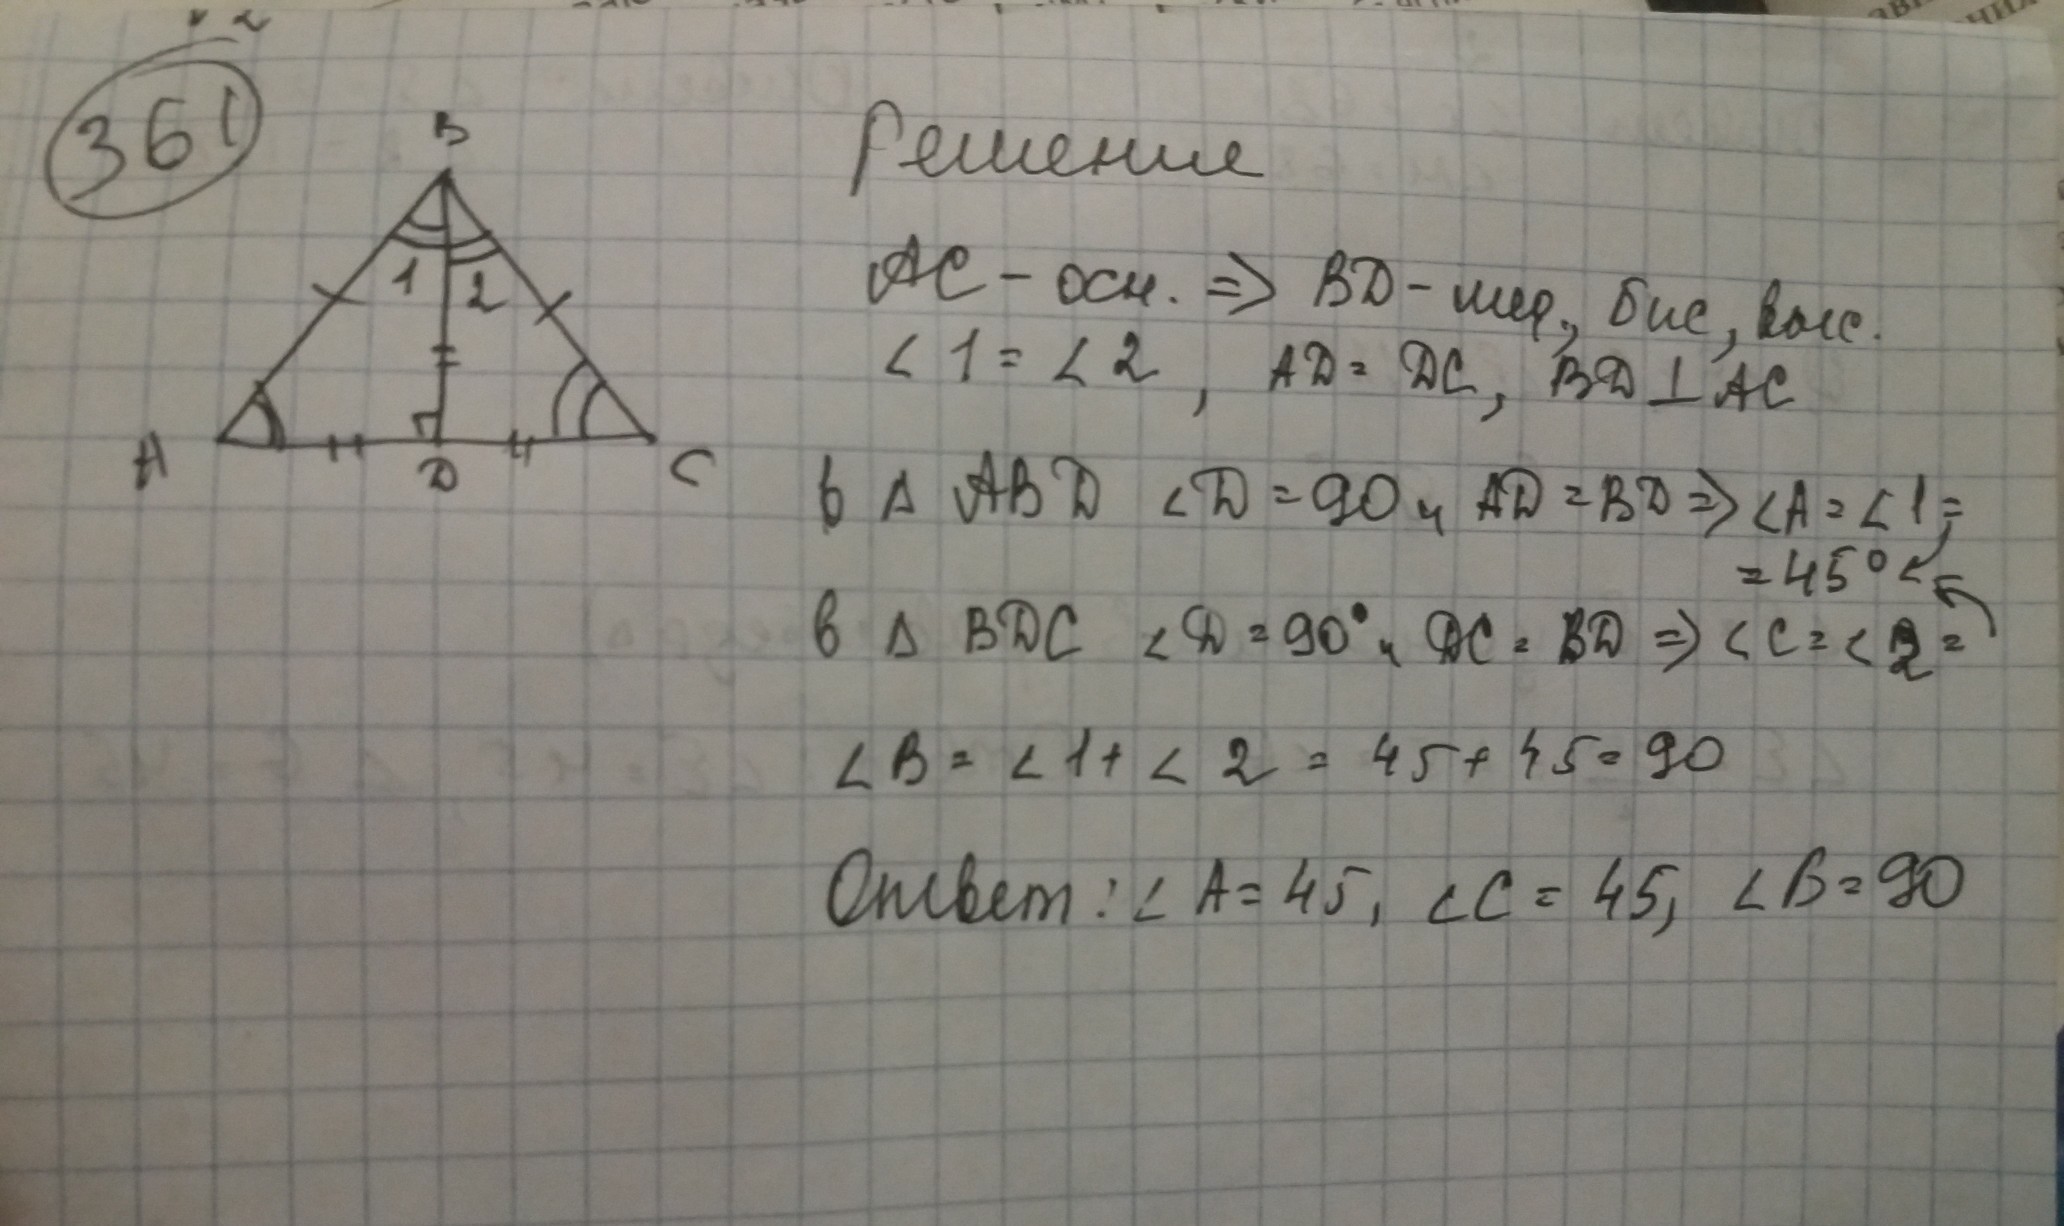 361
B
1 2
A D C
Решение
AC - осн. => BD - мед., бис, выс.
∠1 = ∠2, AD = DC, BD ⊥ AC
в Δ ABD ∠D = 90 и AD = BD => ∠A = ∠1 =
= 45°
в Δ BDC ∠D = 90° и DC = BD => ∠C = ∠2 =
∠B = ∠1 + ∠2 = 45 + 45 = 90
Ответ: ∠A = 45, ∠C = 45, ∠B = 90